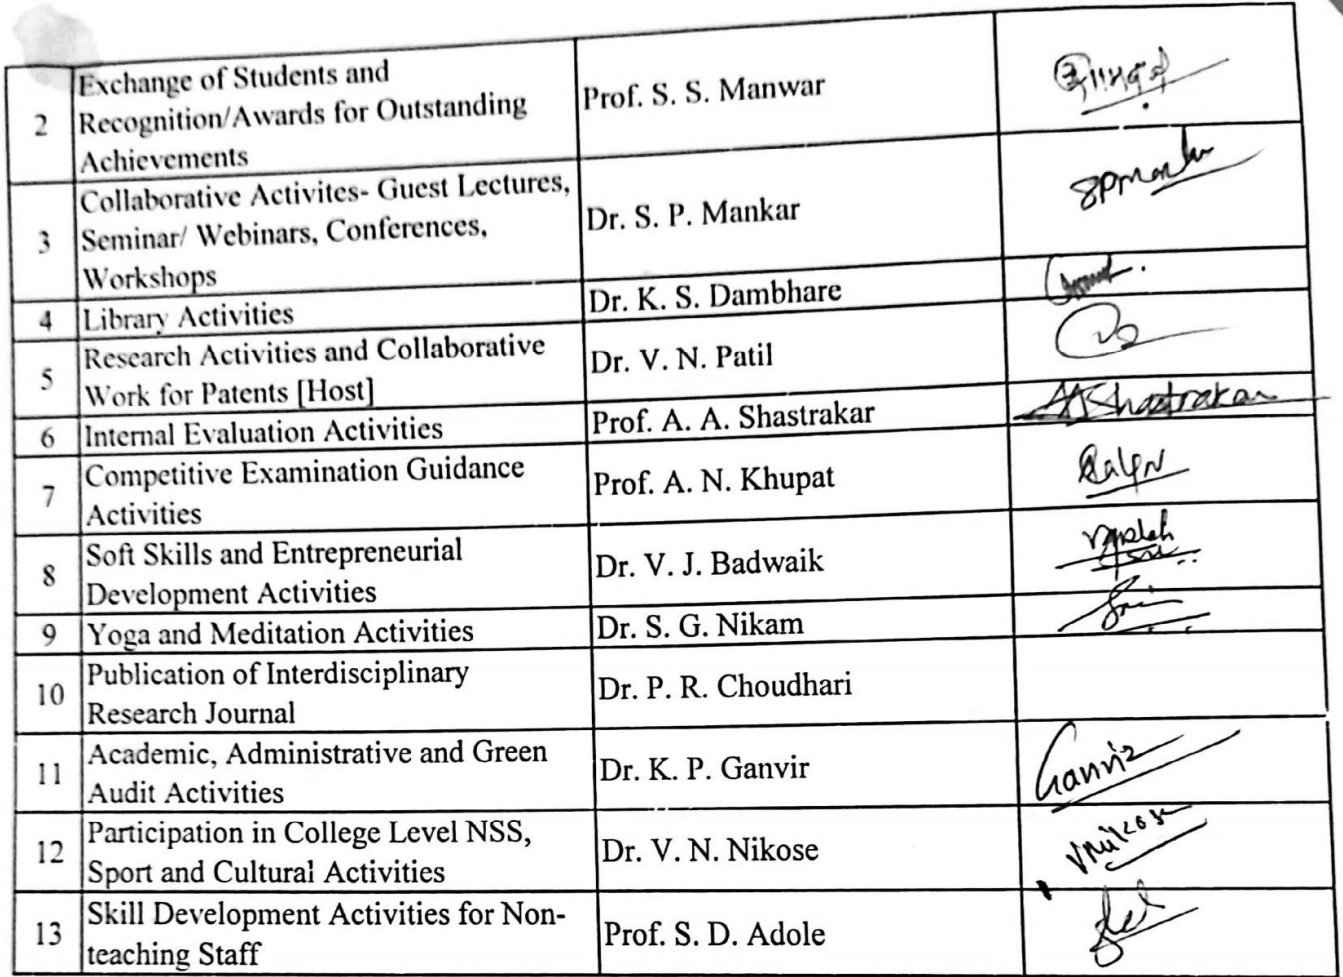 2
Exchange of Students and
Recognition/Awards for Outstanding
Achievements
Prof. S. S. Manwar
3
Collaborative Activites- Guest Lectures,
Seminar/ Webinars, Conferences,
Workshops
Dr. S. P. Mankar
4
Library Activities
Dr. K. S. Dambhare
5
Research Activities and Collaborative
Work for Patents [Host]
Dr. V. N. Patil
6
Internal Evaluation Activities
Prof. A. A. Shastrakar
AAShastrakar
7
Competitive Examination Guidance
Activities
Prof. A. N. Khupat
8
Soft Skills and Entrepreneurial
Development Activities
Dr. V. J. Badwaik
9
Yoga and Meditation Activities
Dr. S. G. Nikam
10
Publication of Interdisciplinary
Research Journal
Dr. P. R. Choudhari
11
Academic, Administrative and Green
Audit Activities
Dr. K. P. Ganvir
Ganvir
12
Participation in College Level NSS,
Sport and Cultural Activities
Dr. V. N. Nikose
VNikose
13
Skill Development Activities for Non-
teaching Staff
Prof. S. D. Adole